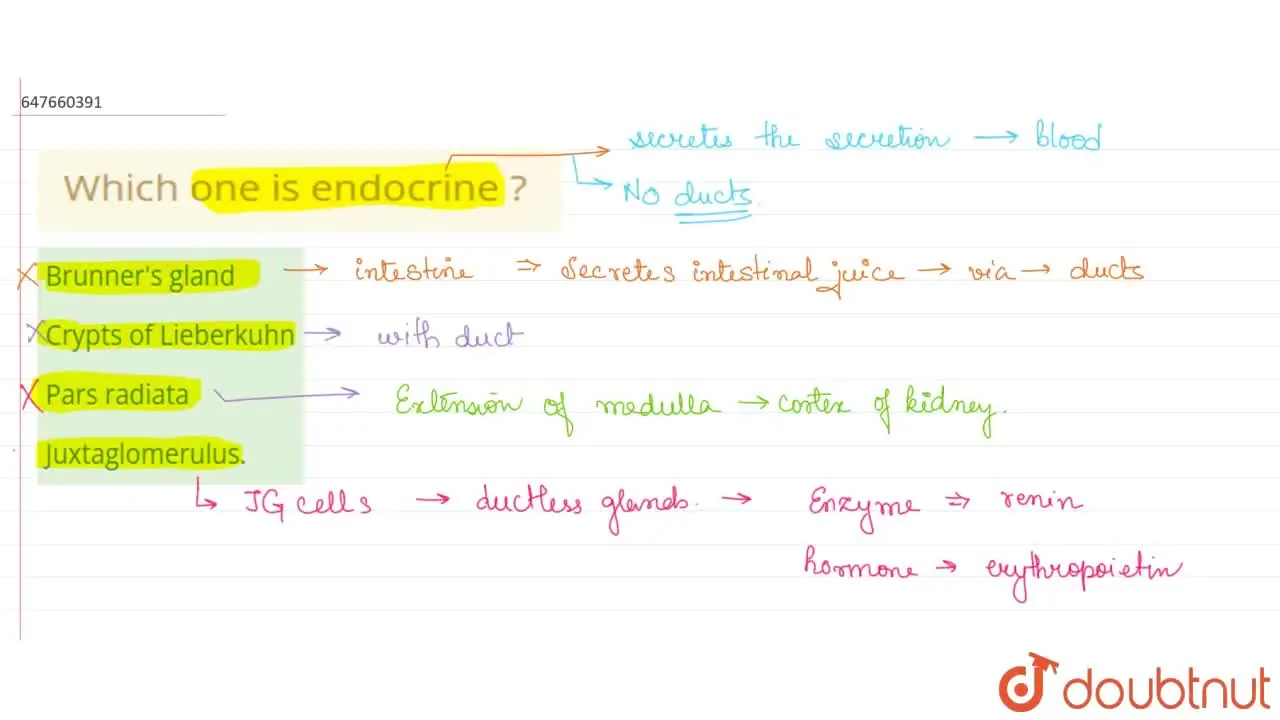 647660391
secretes the secretion → blood
Which one is endocrine ?
No ducts.
Brunner's gland → intestine ⇒ Secretes intestinal juice → via → ducts
Crypts of Lieberkuhn → with duct
Pars radiata → Extension of medulla → cortex of kidney.
Juxtaglomerulus.
JG cells → ductless glands. → Enzyme ⇒ renin
hormone → erythropoietin
doubtnut